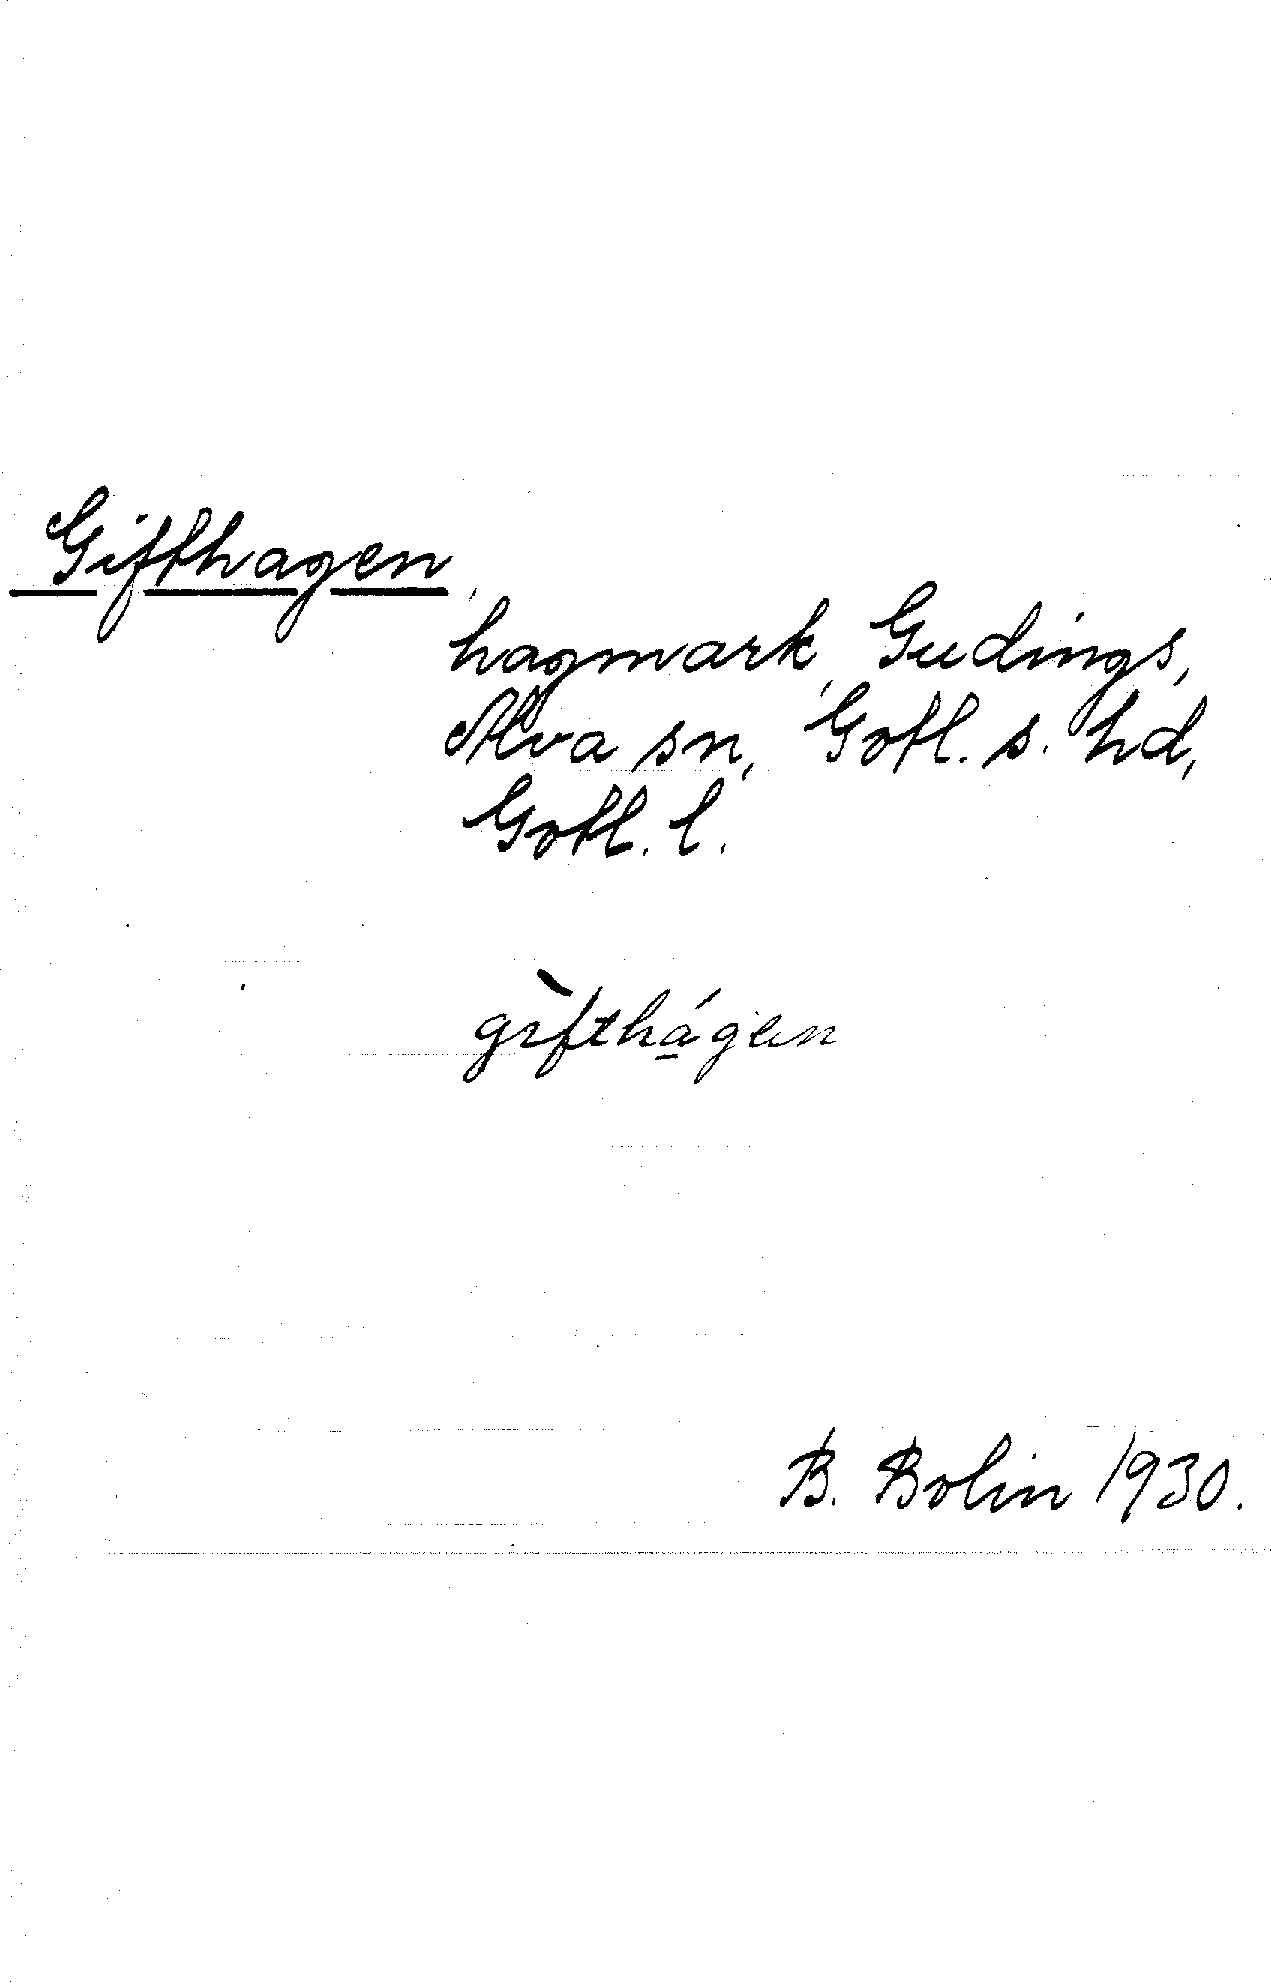 Gifthagen,
hagmark, Gudings,
Alva sn, Gotl. s. hd,
Gotl. l.
gìfthá̲gen
B. Bolin 1930.